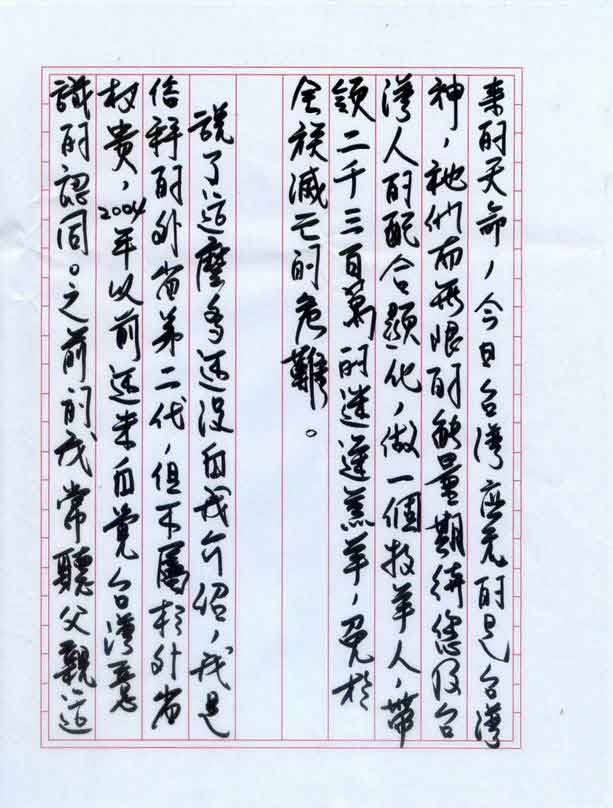 來的天命，今日台灣的是台灣
神，祂們有無限的能量期待您及台
灣人的配合顯化，做一個牧羊人，帶
領二千三百萬的迷途羔羊，免於
全族滅亡的危難。
說了這麼多還沒自我介紹，我是
俗稱的外省第二代，但不屬於外省
权貴，2004年以前还未自覺台灣意
識的認同。之前的我常聽父親這